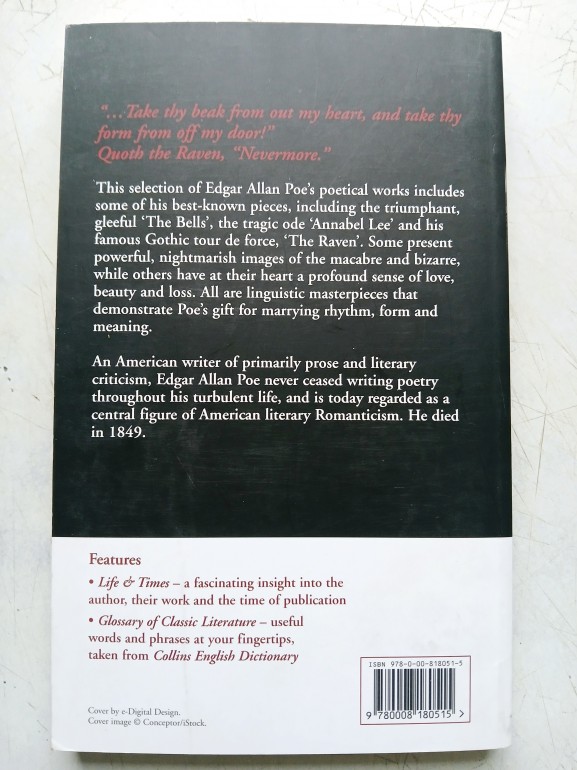 “…Take thy beak from out my heart, and take thy
form from off my door!”
Quoth the Raven, “Nevermore.”
This selection of Edgar Allan Poe’s poetical works includes
some of his best-known pieces, including the triumphant,
gleeful ‘The Bells’, the tragic ode ‘Annabel Lee’ and his
famous Gothic tour de force, ‘The Raven’. Some present
powerful, nightmarish images of the macabre and bizarre,
while others have at their heart a profound sense of love,
beauty and loss. All are linguistic masterpieces that
demonstrate Poe’s gift for marrying rhythm, form and
meaning.
An American writer of primarily prose and literary
criticism, Edgar Allan Poe never ceased writing poetry
throughout his turbulent life, and is today regarded as a
central figure of American literary Romanticism. He died
in 1849.
Features
• Life & Times – a fascinating insight into the
author, their work and the time of publication
• Glossary of Classic Literature – useful
words and phrases at your fingertips,
taken from Collins English Dictionary
ISBN 978-0-00-818051-5
9 780008 180515 >
Cover by e-Digital Design.
Cover image © Conceptor/iStock.